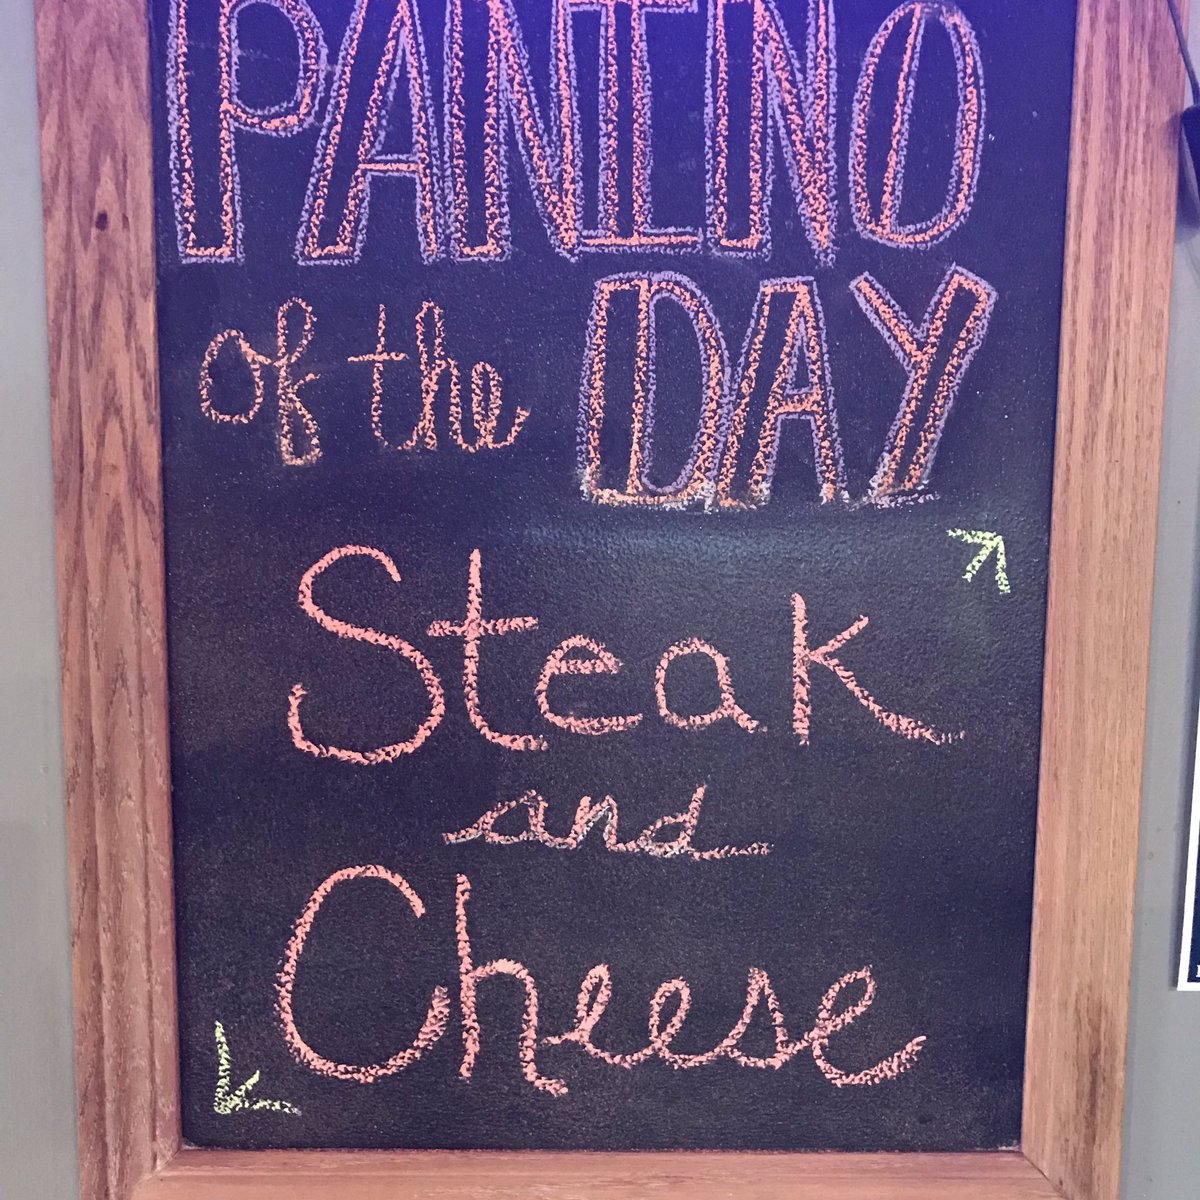 PANINO
of the DAY
Steak
and
Cheese